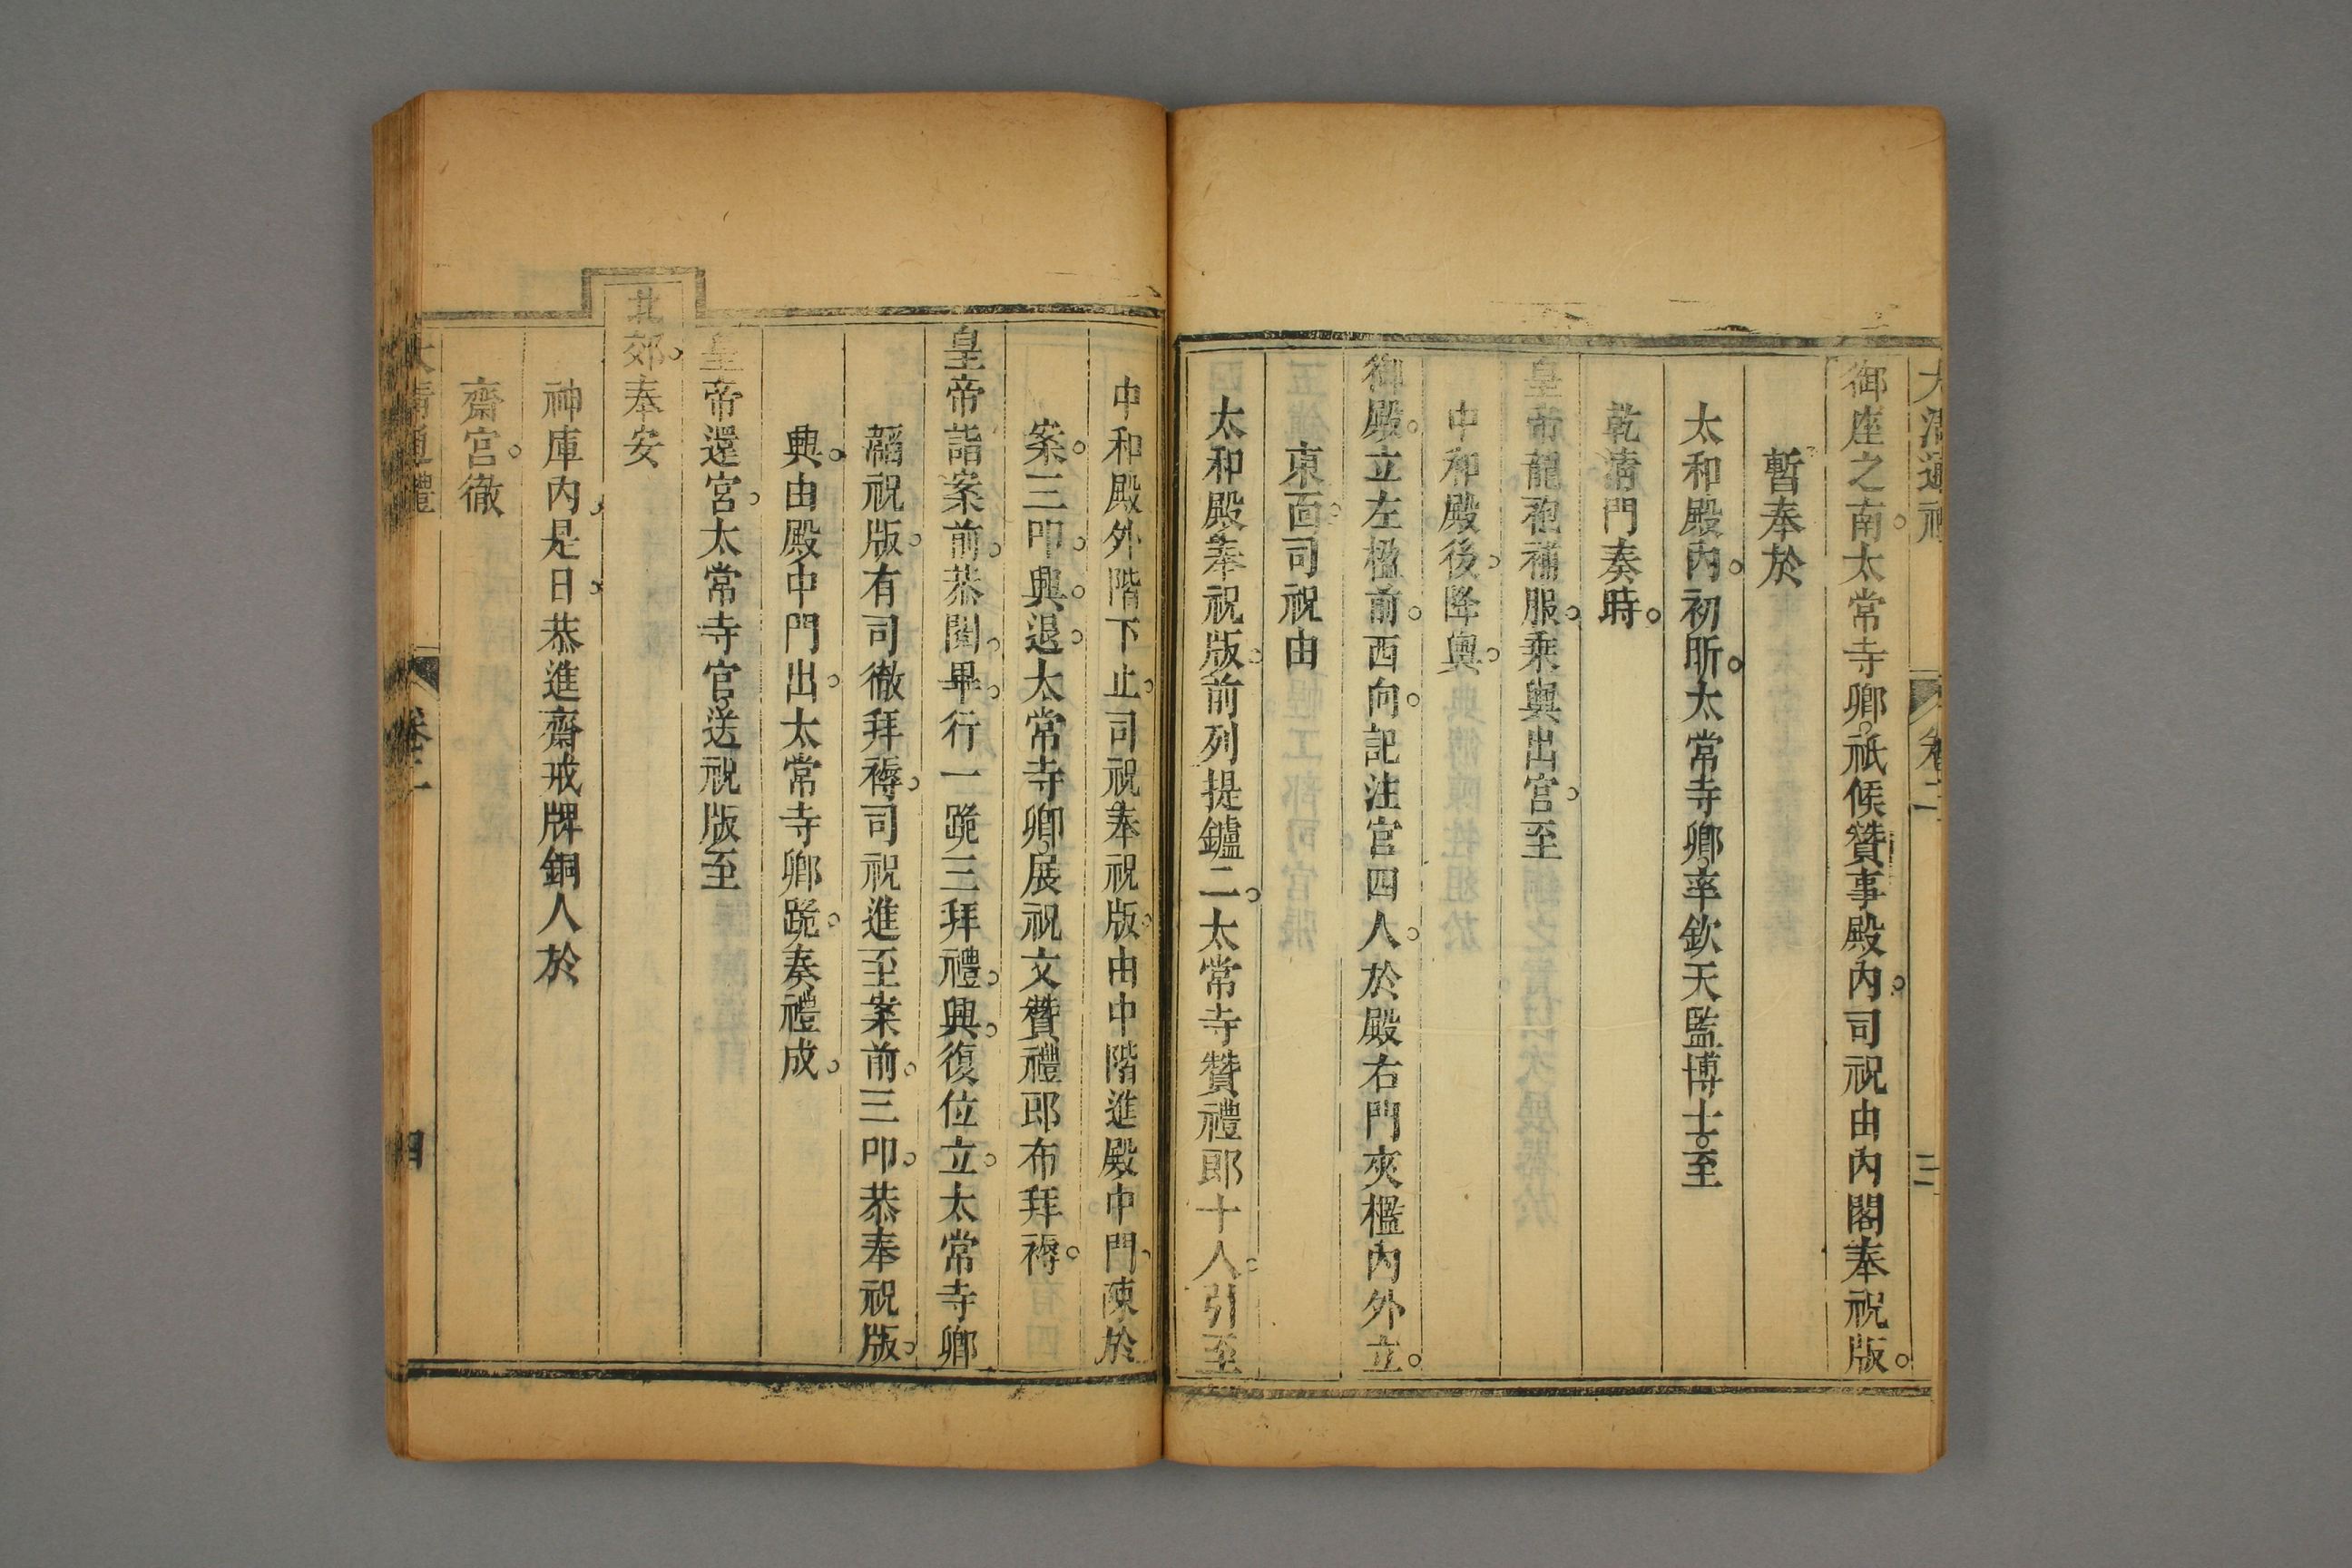 大清通禮 卷二 三
御座之南。太常寺卿。祇候贊事殿內。司祝由內閣奉祝版。
暫奉於
太和殿內。初昕。太常寺卿。率欽天監博士。至
乾清門奏時。
皇帝龍袍補服。乘輿出宮。至
中和殿後。降輿。
御殿。立左楹前。西向。記注官四人。於殿右門夾檻內外立。
東面。司祝由
太和殿奉祝版。前列提鑪二。太常寺贊禮郎十人。引至
中和殿外階下止。司祝奉祝版。由中階進殿中門。陳於
案。三叩。興。退。太常寺卿。展祝文。贊禮郎布拜褥。
皇帝詣案前。恭閱。畢。行一跪三拜禮。興。復位立。太常寺卿
韜祝版。有司徹拜褥。司祝進至案前。三叩。恭奉祝版。
興。由殿中門出。太常寺卿跪。奏禮成。
皇帝還宮。太常寺官。送祝版至
北郊。奉安
神庫內。是日。恭進齋戒牌銅人於
齋宮。徹
大清通禮 卷二 四